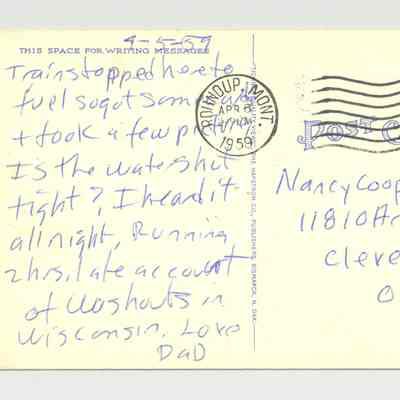 4-5-59
THIS SPACE FOR WRITING MESSAGES
Train stopped here to
fuel so got some
+ took a few
Is the water shut
tight? I heard it
all night, Running
2 hrs. late account
of Washouts in
Wisconsin. Love
DaD
ROUNDUP, MONT.
APR 6
1959
POST C
Nancy Coop
11810
Cleve
O